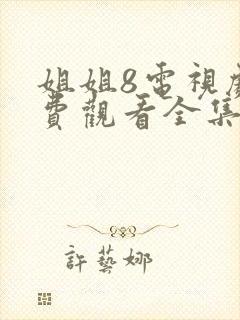 姐姐8電視
費觀看全集
許藝娜